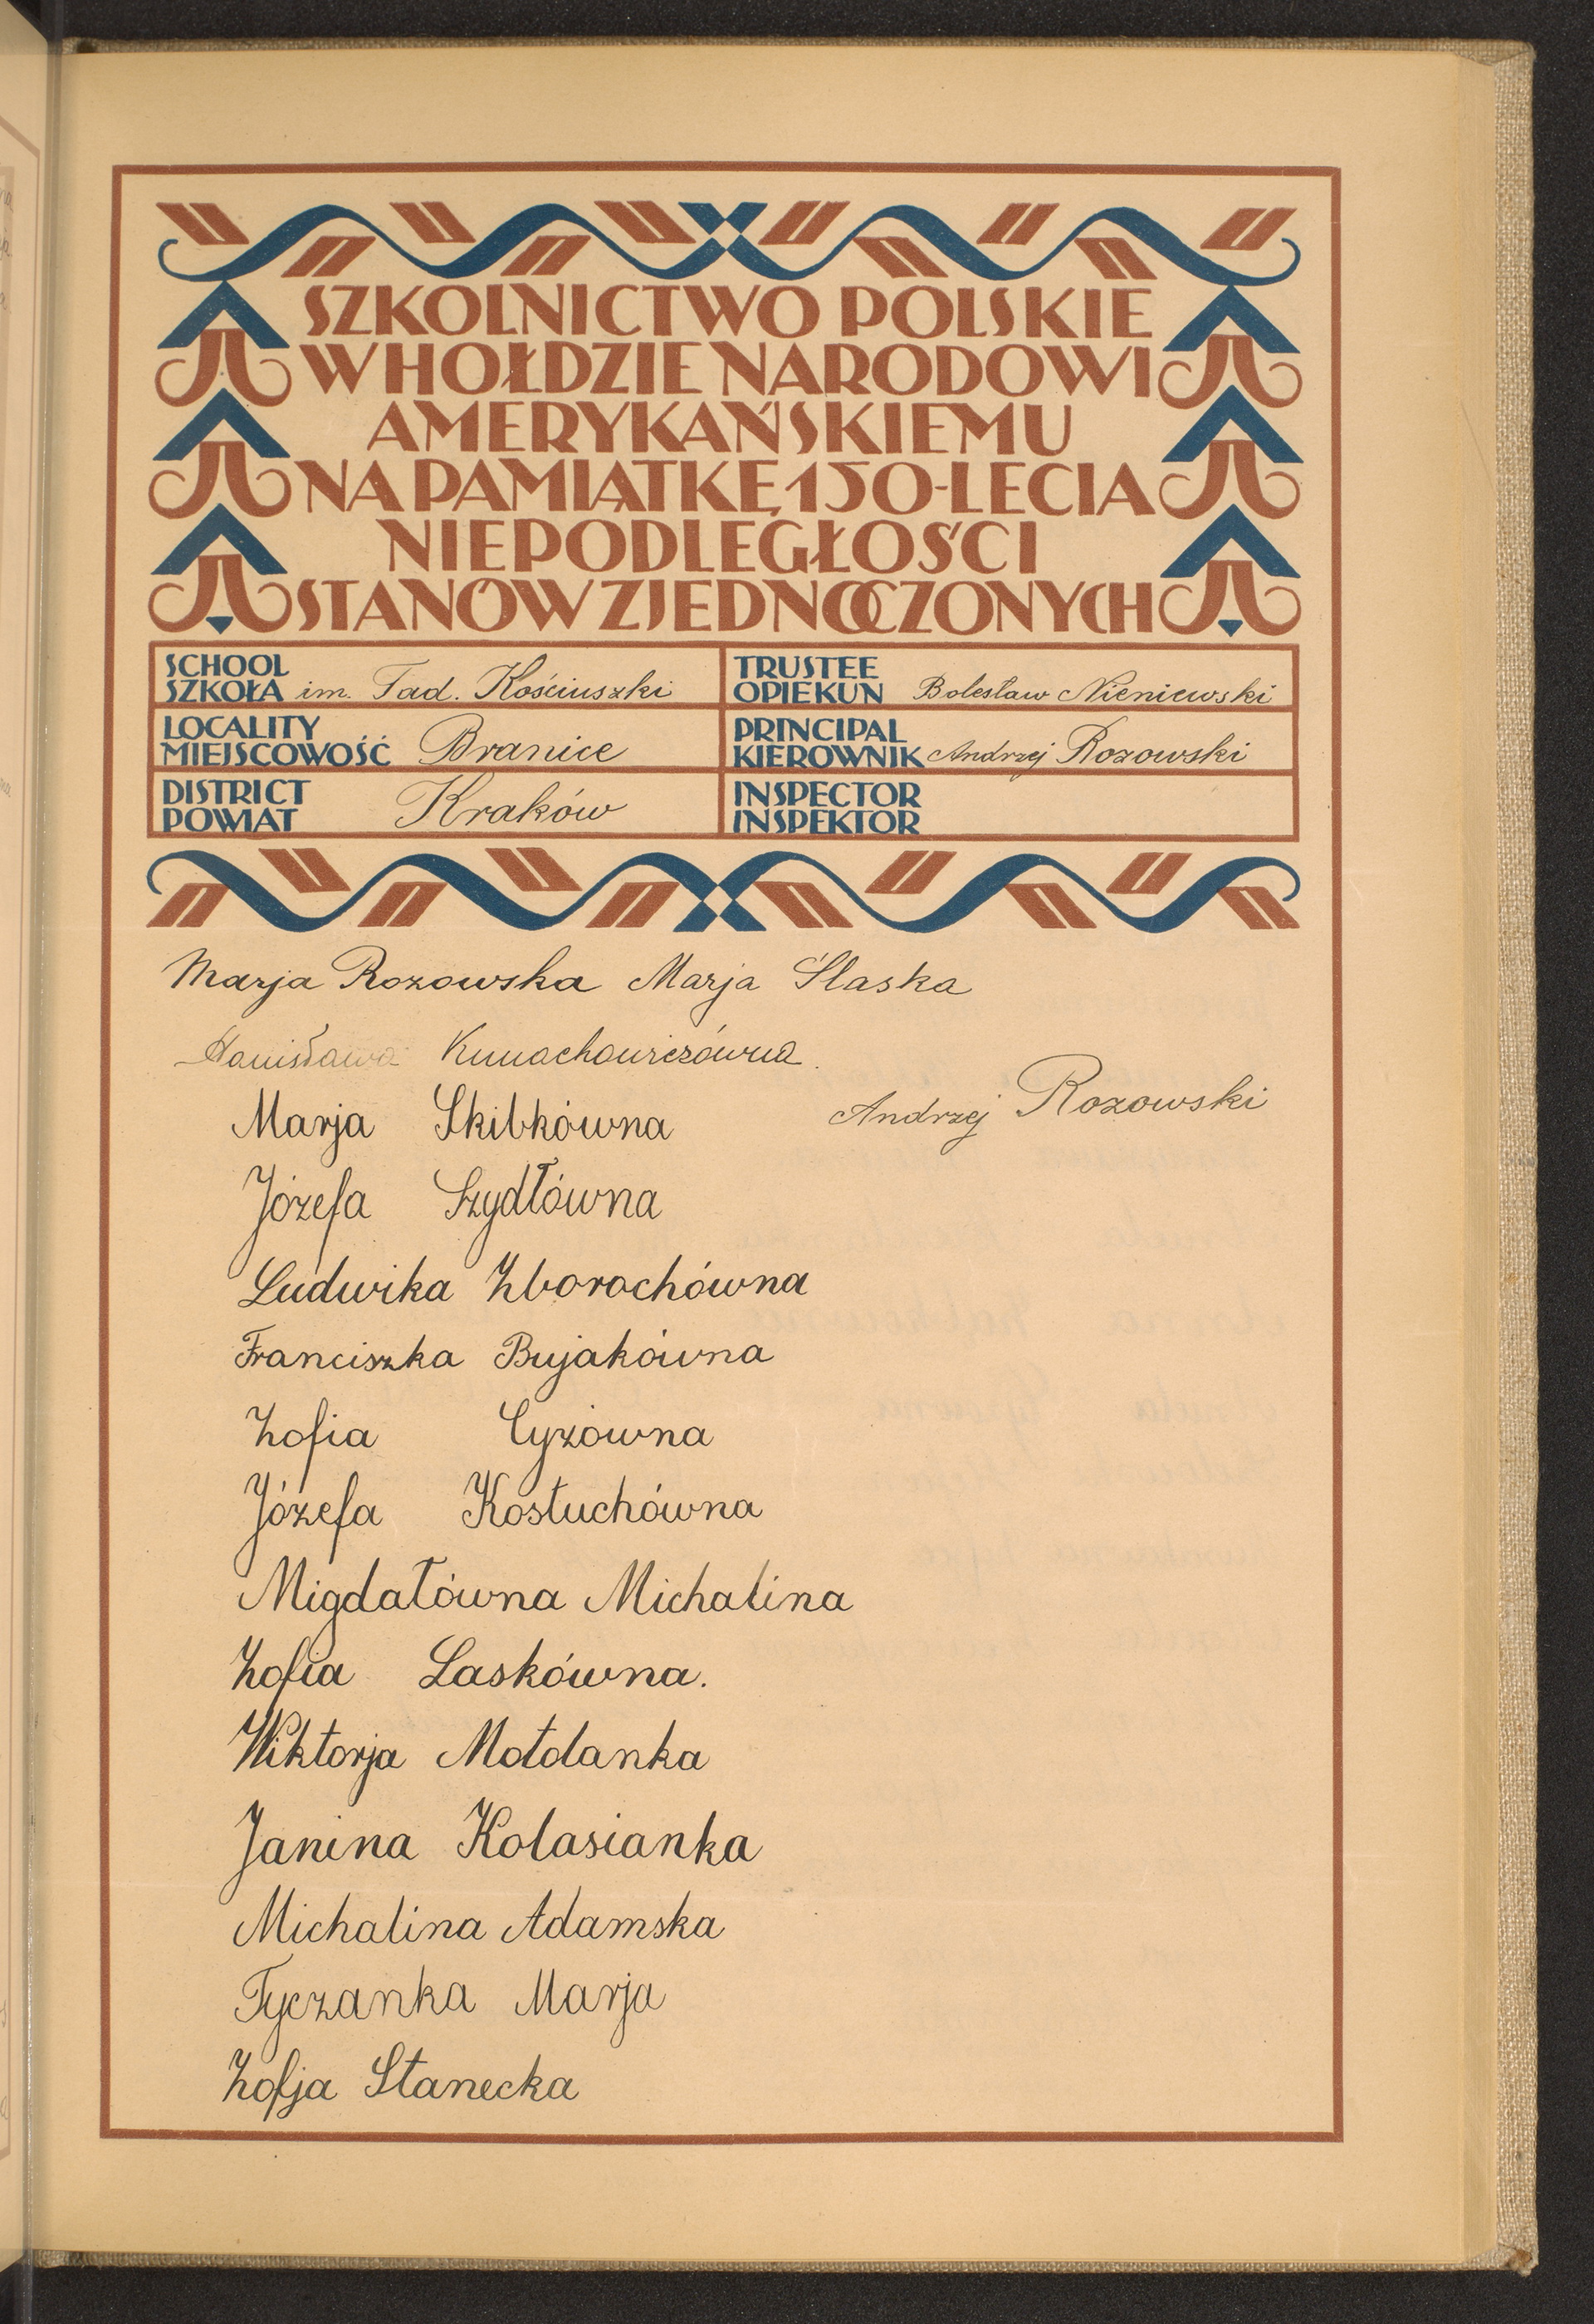 SZKOLNICTWO POLSKIE
W HOŁDZIE NARODOWI
AMERYKAŃSKIEMU
NA PAMIĄTKĘ 150-LECIA
NIEPODLEGŁOŚCI
STANÓW ZJEDNOCZONYCH
SCHOOL
SZKOŁA im. Tad. Kościuszki
TRUSTEE
OPIEKUN Bolesław Nieniewski
LOCALITY
MIEJSCOWOŚĆ Branice
PRINCIPAL
KIEROWNIK Andrzej Rozowski
DISTRICT
POWIAT Kraków
INSPECTOR
INSPEKTOR
Marja Rozowska Marja Ślaska
Stanisława
Andrzej Rozowski
Marja Skibkówna
Józefa Szydłówna
Ludwika Zborochówna
Franciszka Bujakówna
Zofia Cyzówna
Józefa Kostuchówna
Migdałówna Michalina
Zofia Laskówna.
Wiktorja Mołdanka
Janina Kolasianka
Michalina Adamska
Tyczanka Marja
Zofja Stanecka